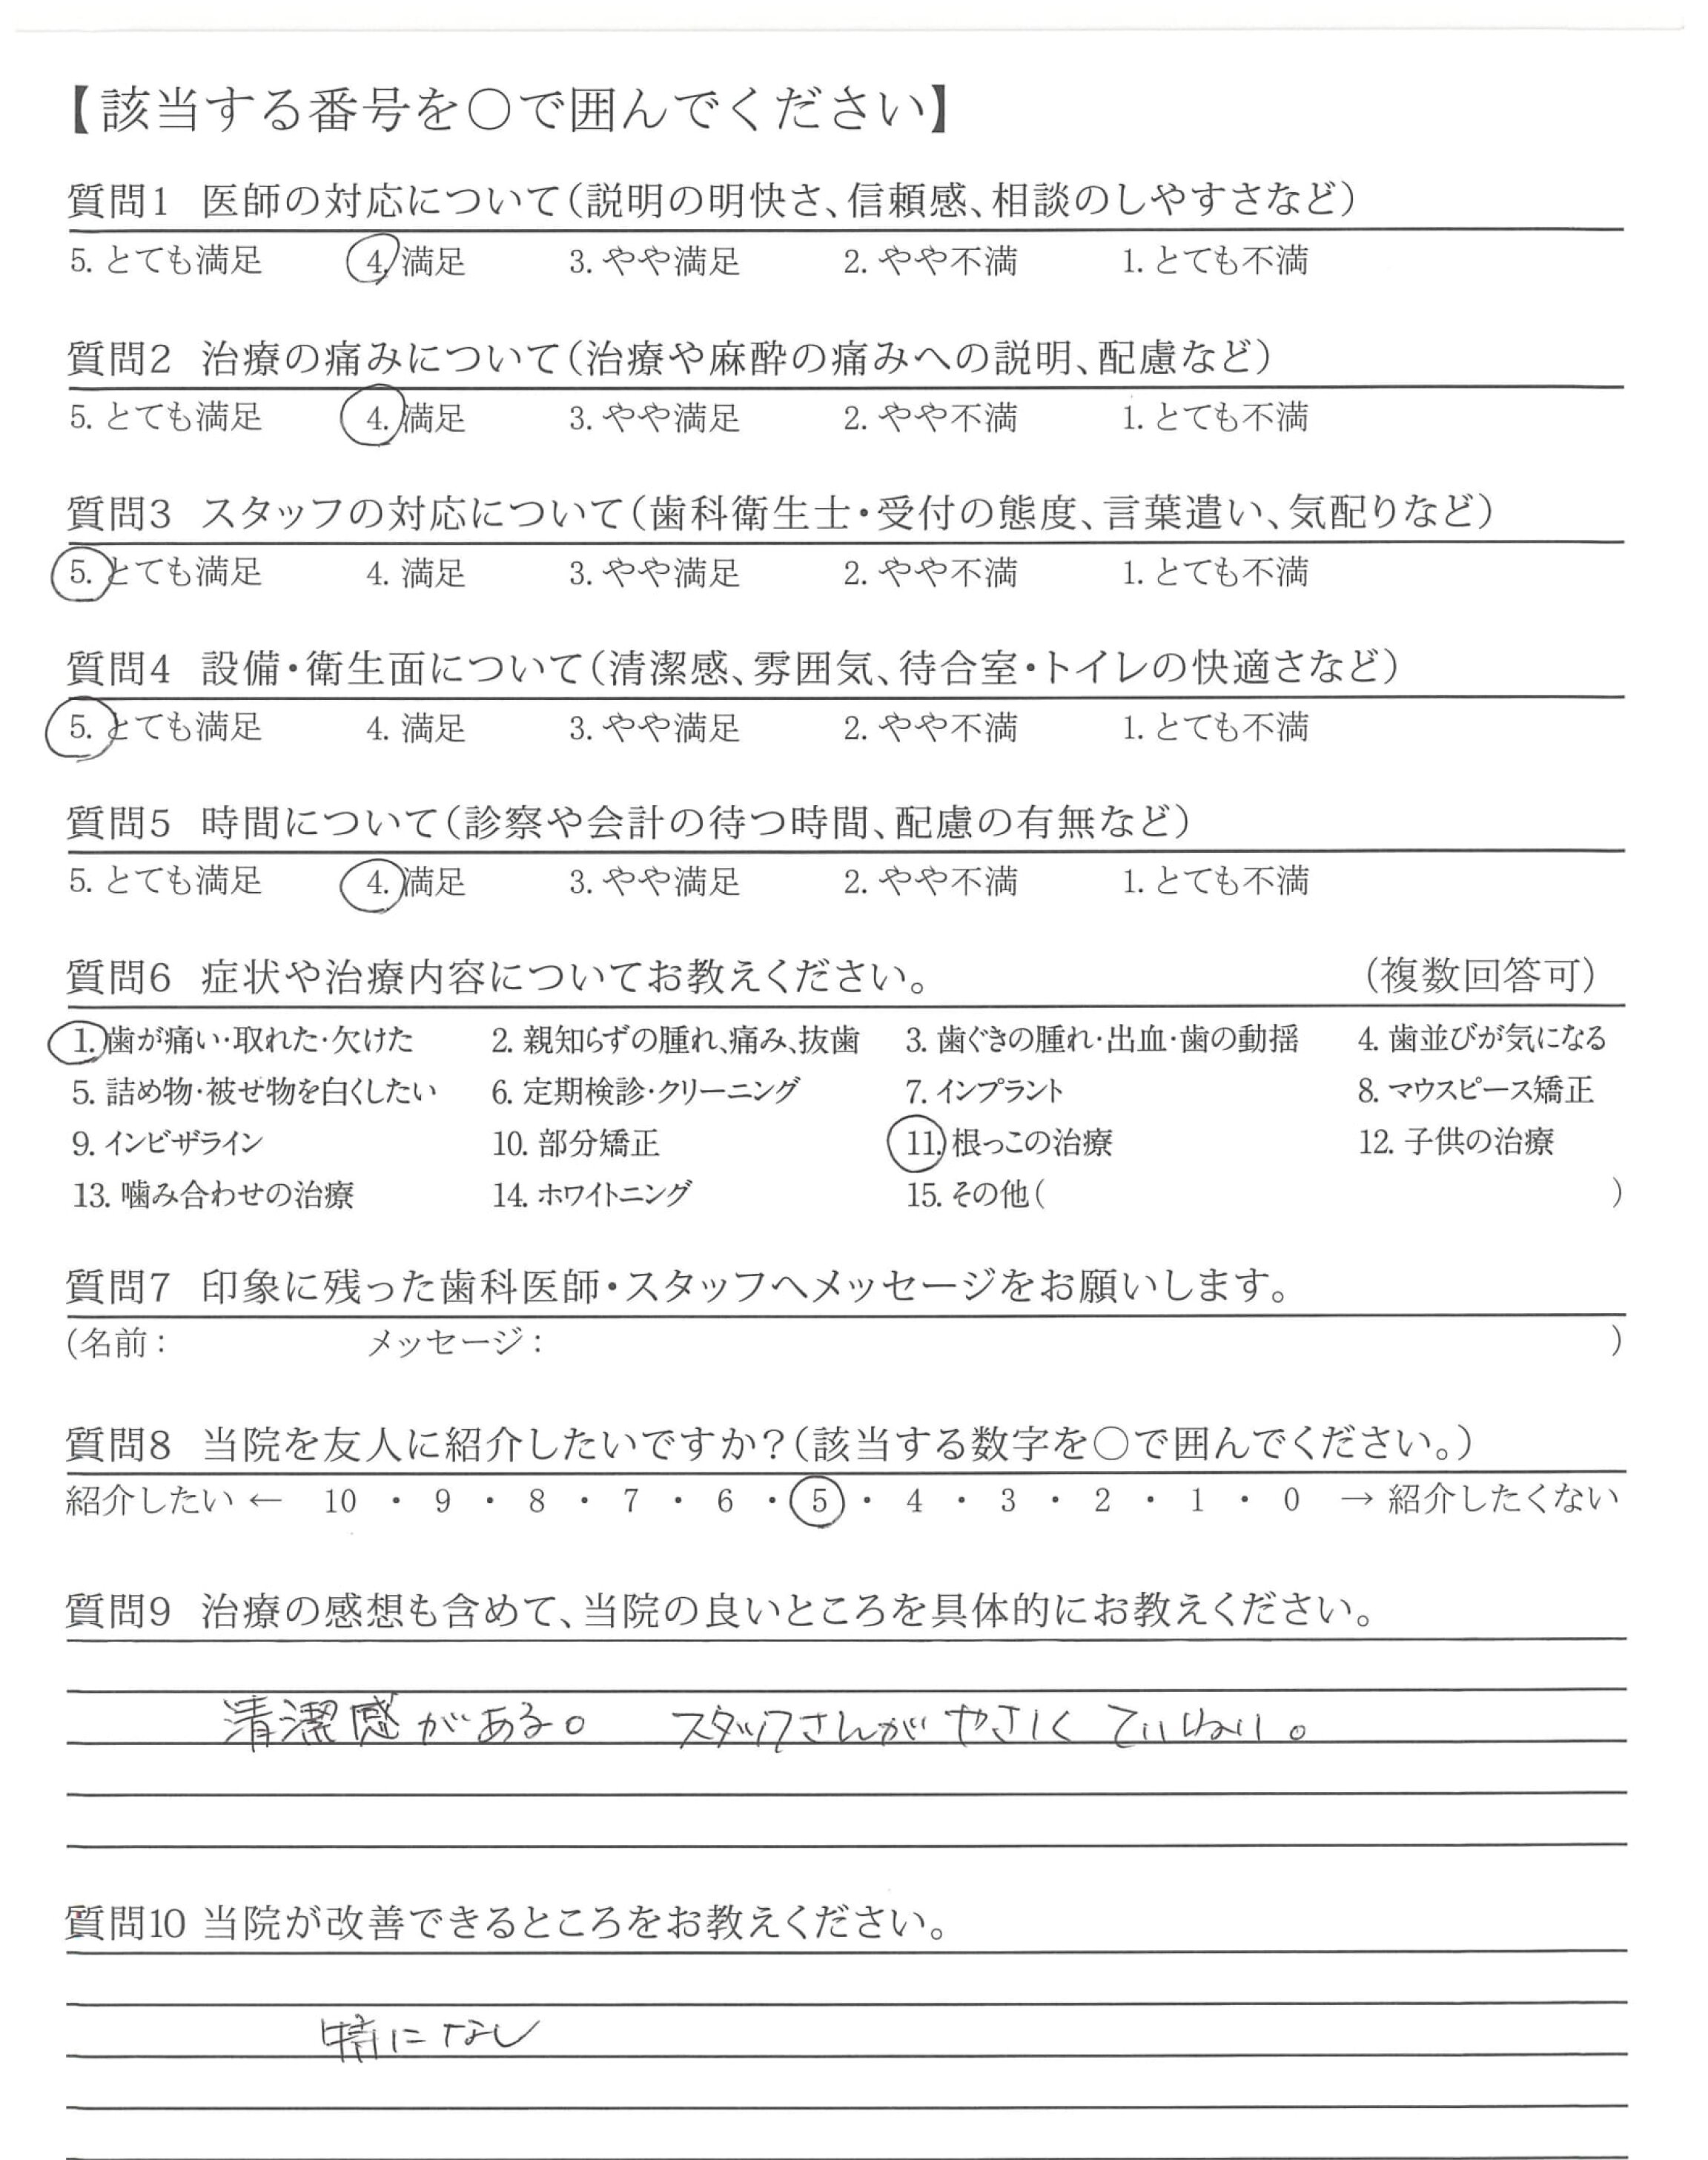 【該当する番号を〇で囲んでください】
質問1 医師の対応について(説明の明快さ、信頼感、相談のしやすさなど)
5. とても満足 4. 満足 3. やや満足 2. やや不満 1. とても不満
質問2 治療の痛みについて(治療や麻酔の痛みへの説明、配慮など)
5. とても満足 4. 満足 3. やや満足 2. やや不満 1. とても不満
質問3 スタッフの対応について(歯科衛生士・受付の態度、言葉遣い、気配りなど)
5. とても満足 4. 満足 3. やや満足 2. やや不満 1. とても不満
質問4 設備・衛生面について(清潔感、雰囲気、待合室・トイレの快適さなど)
5. とても満足 4. 満足 3. やや満足 2. やや不満 1. とても不満
質問5 時間について(診察や会計の待つ時間、配慮の有無など)
5. とても満足 4. 満足 3. やや満足 2. やや不満 1. とても不満
質問6 症状や治療内容についてお教えください。 (複数回答可)
1. 歯が痛い・取れた・欠けた 2. 親知らずの腫れ、痛み、抜歯 3. 歯ぐきの腫れ・出血・歯の動揺 4. 歯並びが気になる
5. 詰め物・被せ物を白くしたい 6. 定期検診・クリーニング 7. インプラント 8. マウスピース矯正
9. インビザライン 10. 部分矯正 11. 根っこの治療 12. 子供の治療
13. 噛み合わせの治療 14. ホワイトニング 15. その他( )
質問7 印象に残った歯科医師・スタッフへメッセージをお願いします。
(名前: メッセージ: )
質問8 当院を友人に紹介したいですか?(該当する数字を〇で囲んでください。)
紹介したい ← 10 ・ 9 ・ 8 ・ 7 ・ 6 ・ 5 ・ 4 ・ 3 ・ 2 ・ 1 ・ 0 → 紹介したくない
質問9 治療の感想も含めて、当院の良いところを具体的にお教えください。
清潔感がある。 スタッフさんがやさしくていねい。
質問10 当院が改善できるところをお教えください。
特になし